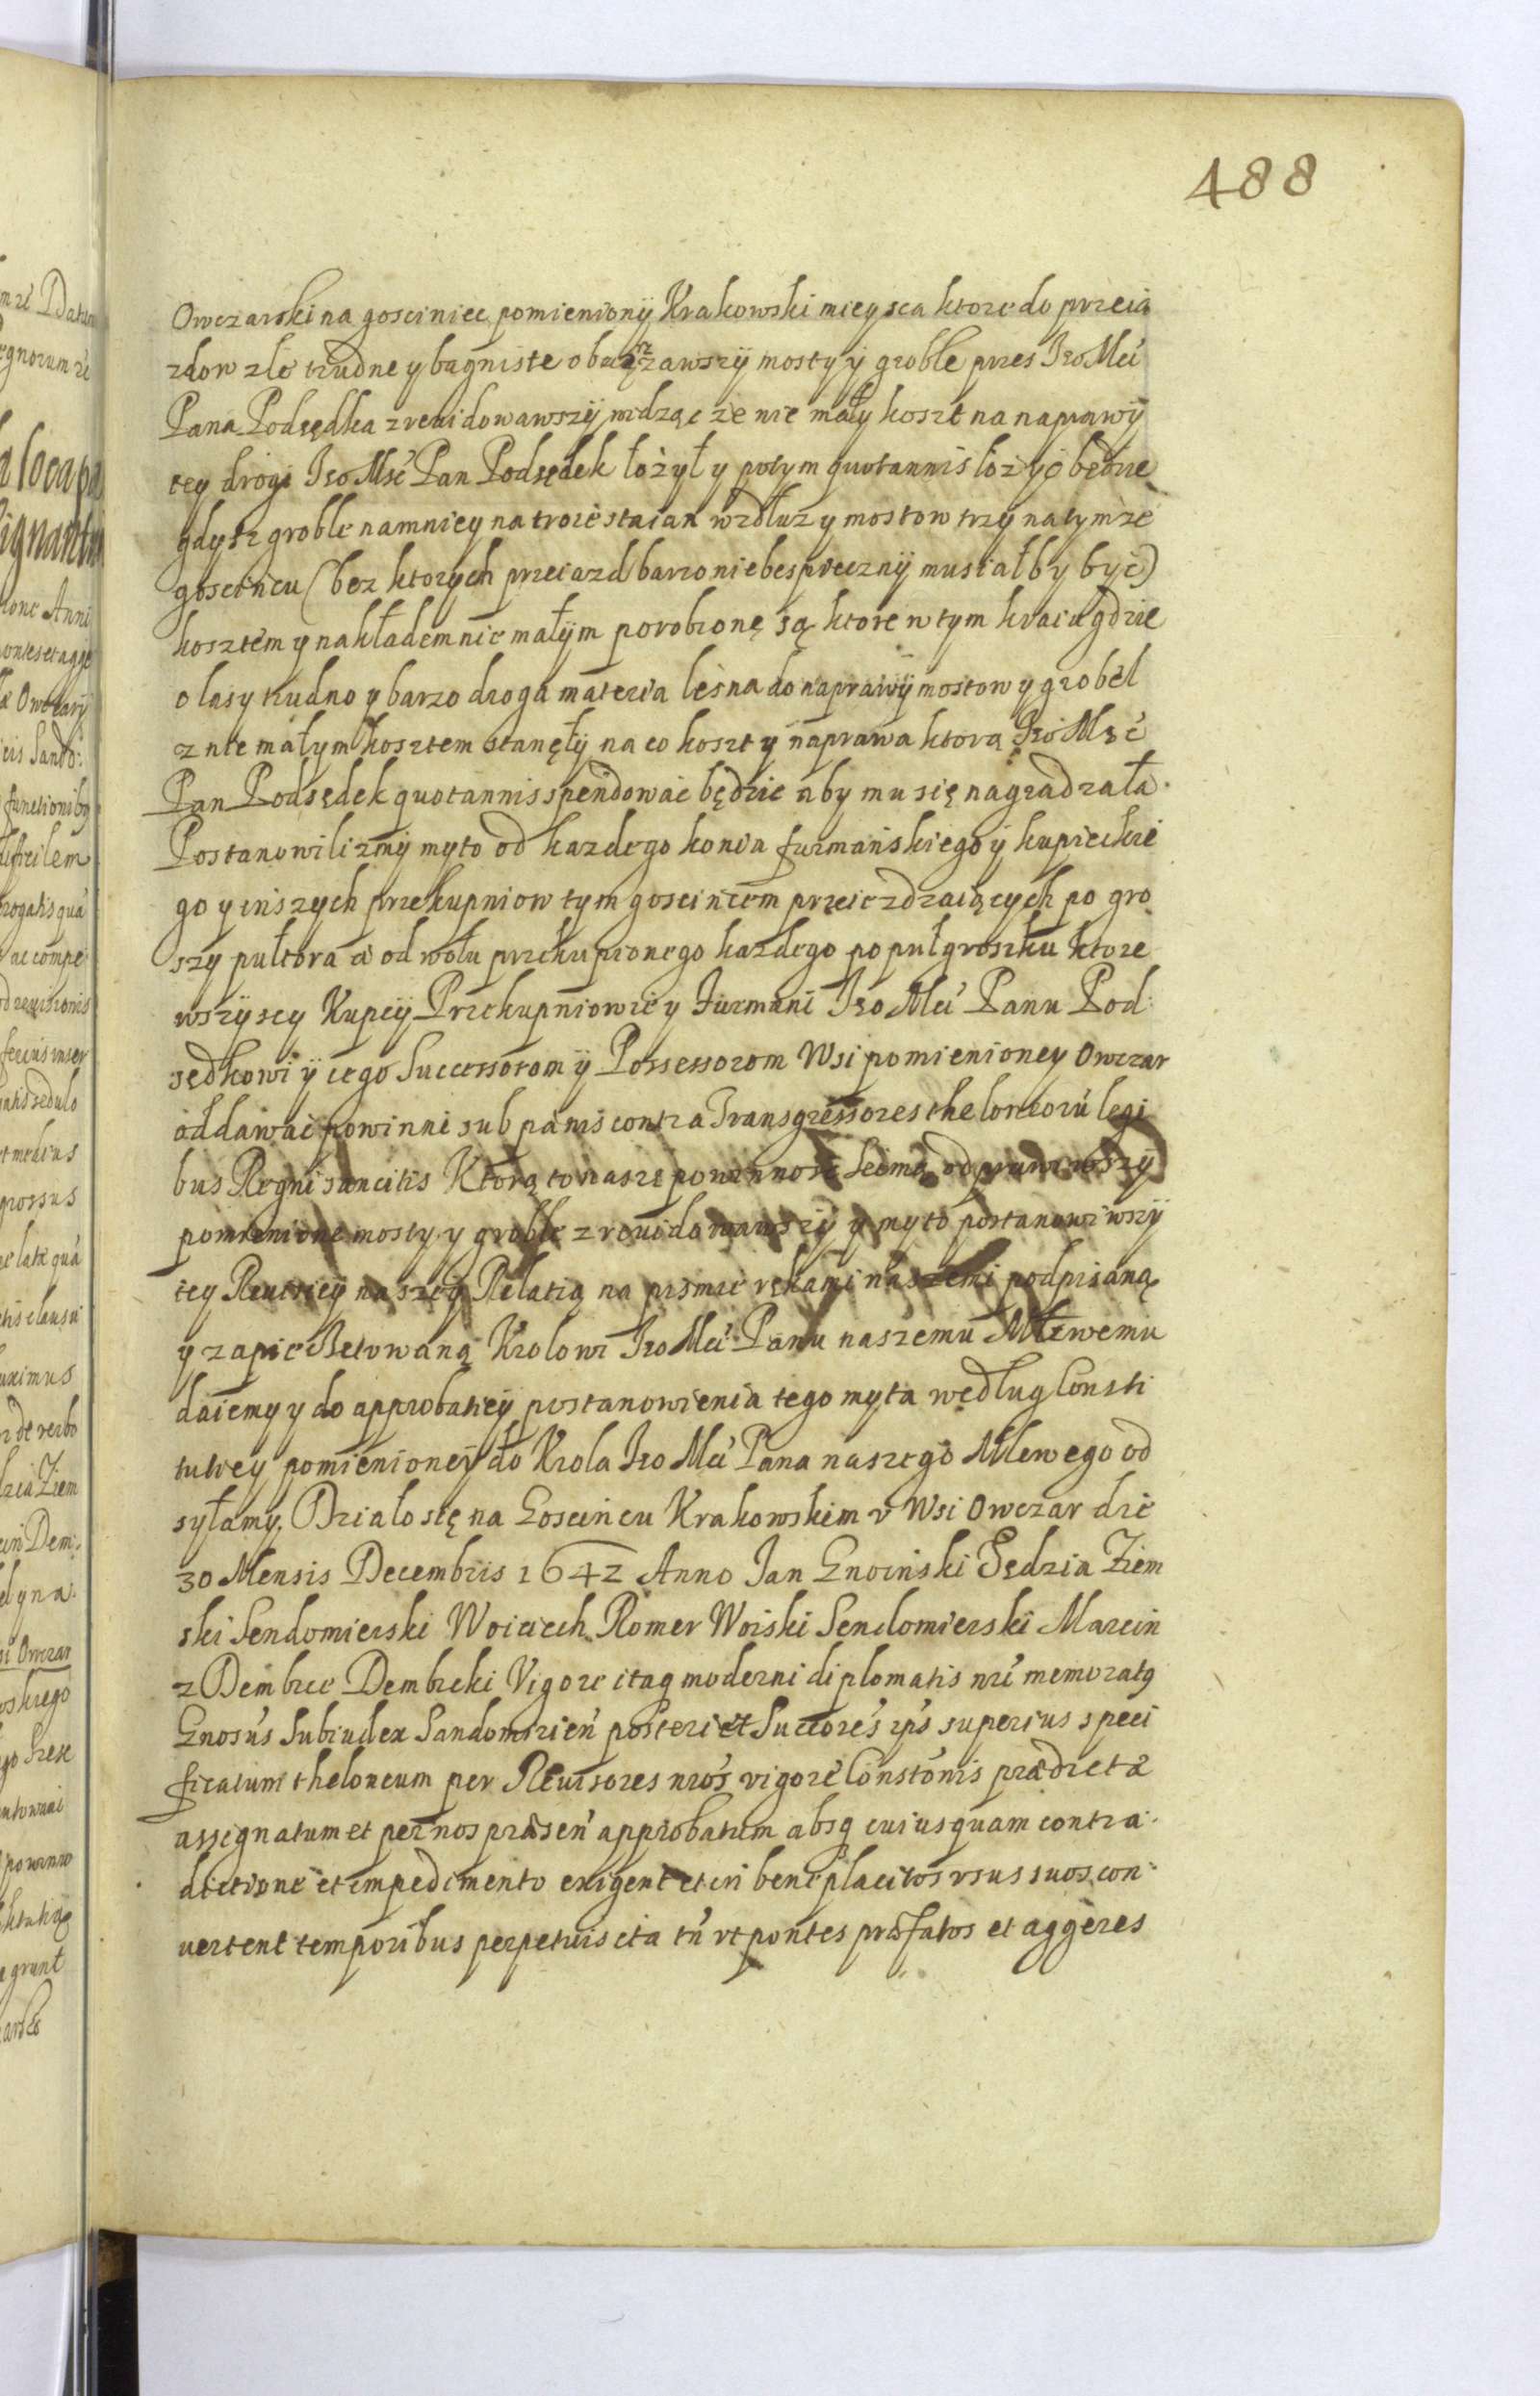 488
Owczarski na gosciniec pomienionÿ Krakowski mieysca ktore do przeia
zdow zlé trudne y bagniste mosty ÿ groble przes JeoMći
Pana Podsędka zreuidowawszÿ widząc że nie mały koszt na naprawÿ
tey drogi JeoMść Pan Podsędek łożył y potym quotannis łożyć będzie
gdysz groble namniey na troie staian wzdłuz y mostow trzy na tymże
goscincu (bez ktorych przeiazd barzo niebespiecznÿ musiałby być)
kosztem y nakładem nie małÿm porobionę są ktore w tym kraiu gdzie
o lasy trudno y barzo droga materia leśna do naprawÿ mostow y grobel
z nie małym kosztem stanęłÿ na co koszt ÿ naprawa ktorą JeoMść
Pan Podsędek quotannis spendować będzie aby mu się nagradzała
Postanowilizmÿ myto od kazdego konia furmańskiego ÿ kupieckie
go y inszych przekupniow tym goscińcem przeiezdzaiących po gro
szy pułtora a od wołu przekupionego kazdego po pułgroszku ktore
wszÿscy Kupcÿ Przekupniowie y Furmani JeoMći Panu Pod
sędkowi ÿ iego Successorom ÿ Possessorom Wsi pomienioney Owczar
oddawać powinni sub pænis contra Transgressores theloneorū legi
bus Regni sancitis Ktorą to nasze powinność odprawiwszÿ
pomienione mosty y groble zreuidowawszÿ y myto postanowiwszÿ
tey Reuisiey naszey Relatią na pismie rękami naszemi podpisaną
y zapieczetowaną Krolowi JeoMći Panu naszemu Młwemu
daiemy y do approbatiey postanowienia tego myta według Consti
tutiey pomienioneÿ do Krola JeoMći Pana naszego Młwego od
syłamy. Działo się na Goscińcu Krakowskim v Wsi Owczar die
30 Mensis Decembris 1642 Anno Jan Gnoiński Sędzia Ziem
ski Sendomierski Woiciech Romer Woiski Sendomierski Marcin
z Dembice Dembicki Vigore itaq moderni diplomatis nrī memoratq
Gnosūs Subiudex Sandomirień posteri et Succorēs ipīs superius speci
ficatum theloneum per Reuisores nrōs vigore Constōnis prædictæ
assignatum et per nos præsen̄ approbatum absq cuiusquam contra
dictione et impedimento exigent et in beneplacitos vsus suos con
uertent temporibus perpetuis ita tn̄ vt pontes præfatos et aggeres